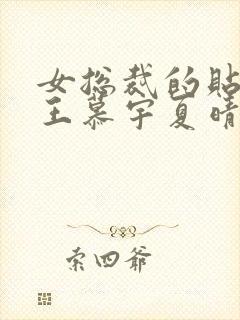 女总裁的贴
王慕宇夏晴
索四爷